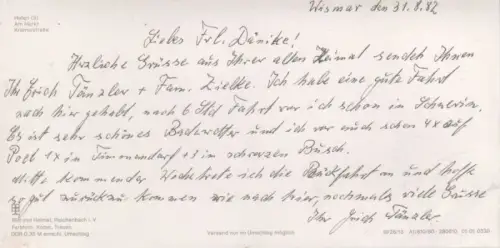 Hotel OL
Am Markt
Krämerstraße
Wismar den 31.8.82
Liebes Frl. Dänike!
Herzliche Grüsse aus Ihrer alten Heimat sendet Ihnen
Ihr Erich Tänzler + Fam. Zielke. Ich habe eine gute Fahrt
nach hier gehabt, nach 6 Std Fahrt war ich schon in Schwerin.
Es ist sehr schönes Badewetter und ich war auch schon 4x auf
Poel 1x in Timmendorf + 3 in schwarzen Busch.
Mitte kommender Woche trete ich die Rückfahrt an und hoffe
so gut zurück zu kommen wie nach hier, nochmals viele Grüsse
Ihr Erich Tänzler
Bild und Heimat, Reichenbach i. V.
Versand nur im Umschlag möglich